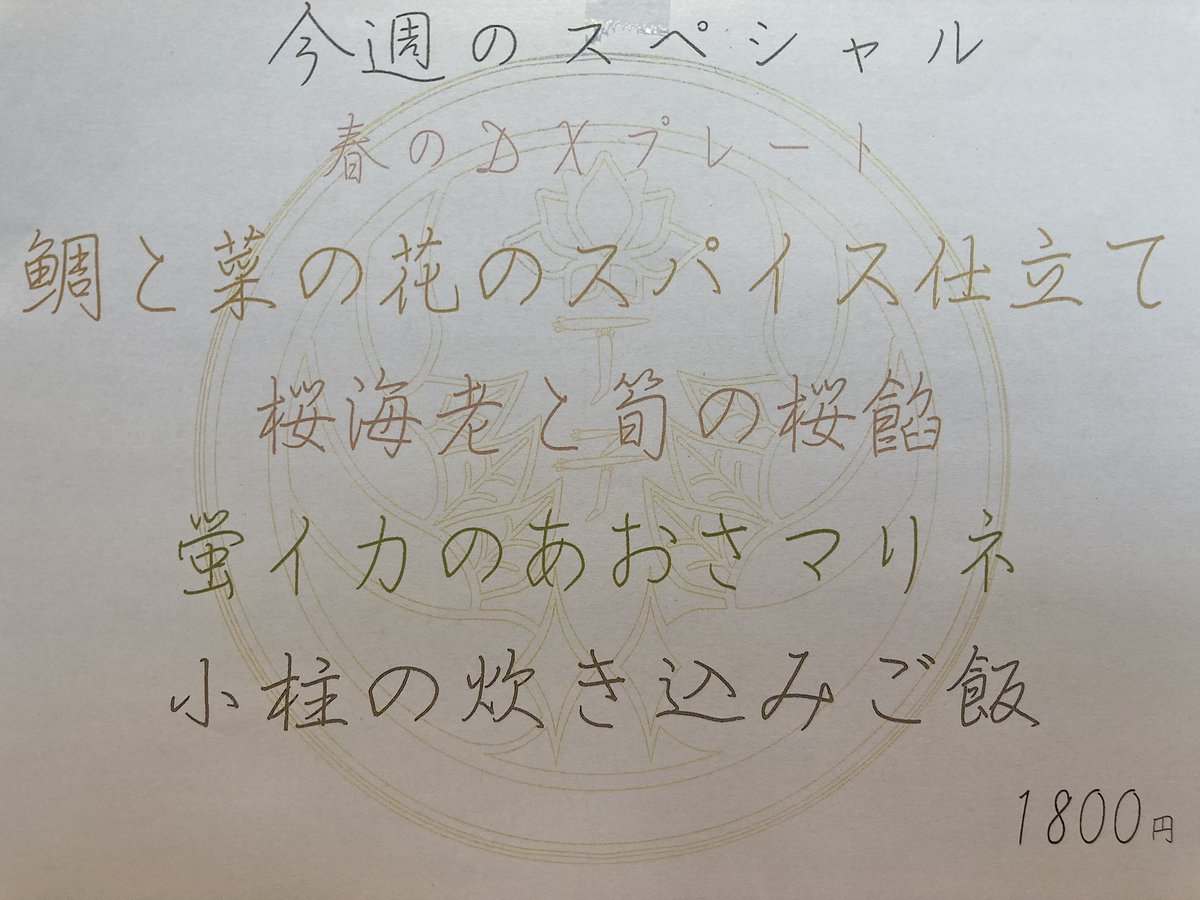 今週のスペシャル
春のDXプレート
鯛と菜の花のスパイス仕立て
桜海老と筍の桜餡
蛍イカのあおさマリネ
小柱の炊き込みご飯
1800円